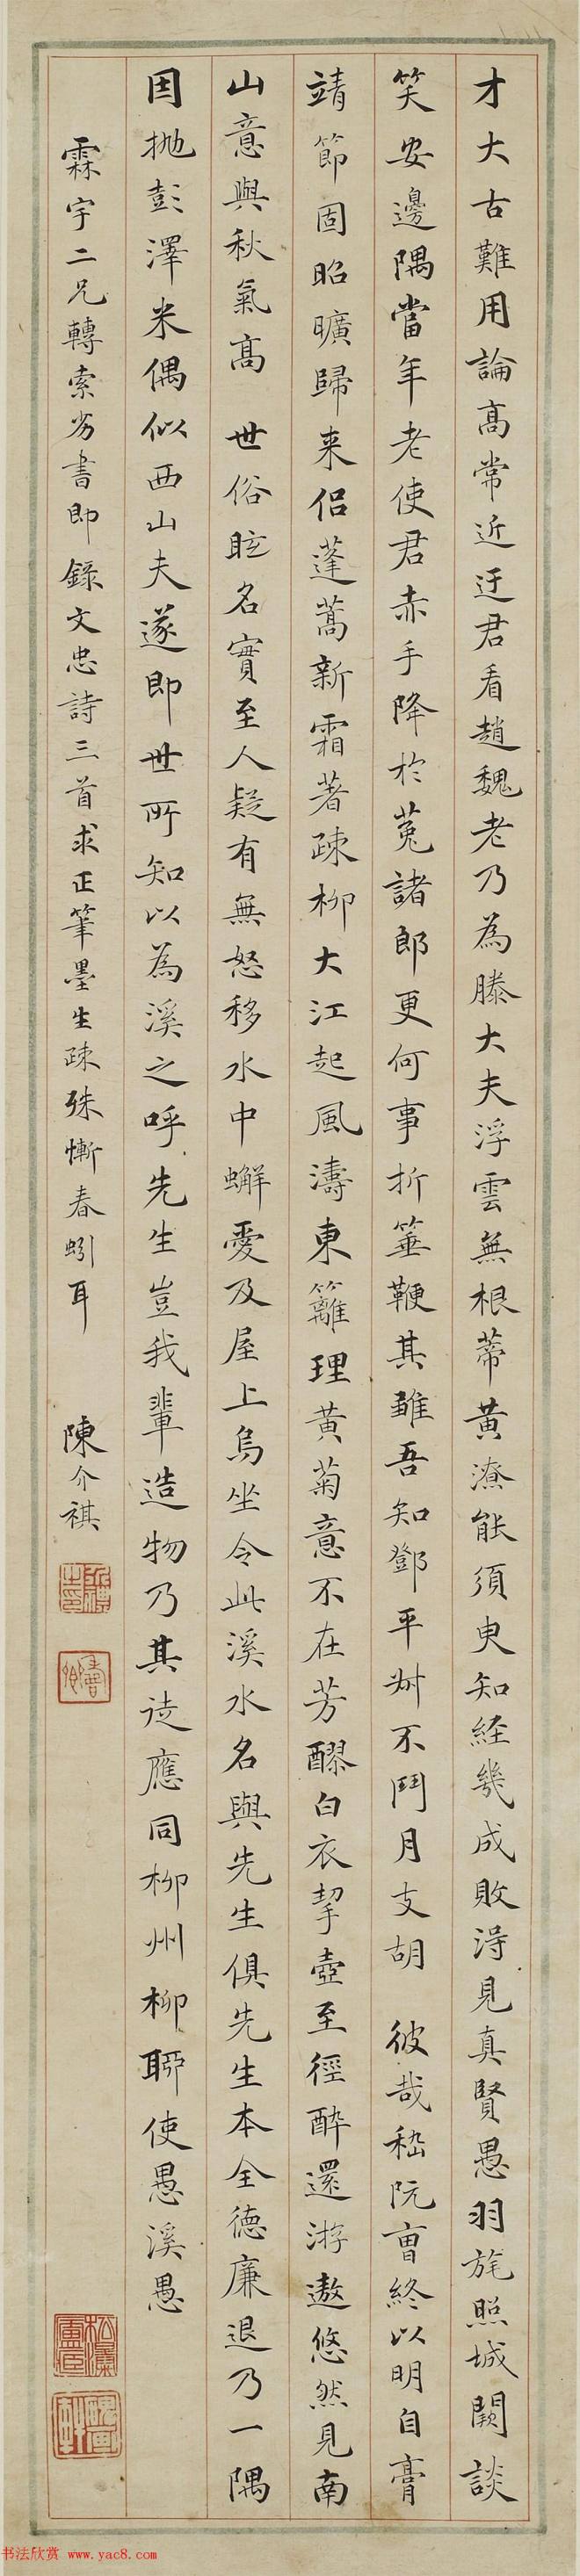 才大古難用論髙常近迂君看趙魏老乃為滕大夫浮雲無根蒂黄潦能須臾知經幾成敗淂見真賢愚羽旄照城闕談
笑安邊隅當年老使君赤手降於菟諸郎更何事折箠鞭其雛吾知鄧平叔不鬥月支胡 彼哉嵇阮曹終以明自膏
靖節固昭曠歸来侣蓬蒿新霜著疎柳大江起風濤東籬理黄菊意不在芳醪白衣挈壺至徑醉還游遨悠然見南
山意與秋氣髙 世俗眩名實至人疑有無怒移水中蠏愛及屋上烏坐令此溪水名與先生俱先生本全德廉退乃一隅
因抛彭澤米偶似西山夫遂即世所知以為溪之呼先生豈我輩造物乃其徒應同柳州柳聊使愚溪愚
霖宇二兄轉索劣書即録文忠詩三首求正筆墨生疎殊慚春蚓耳 陳介祺
书法欣赏 www.yac8.com